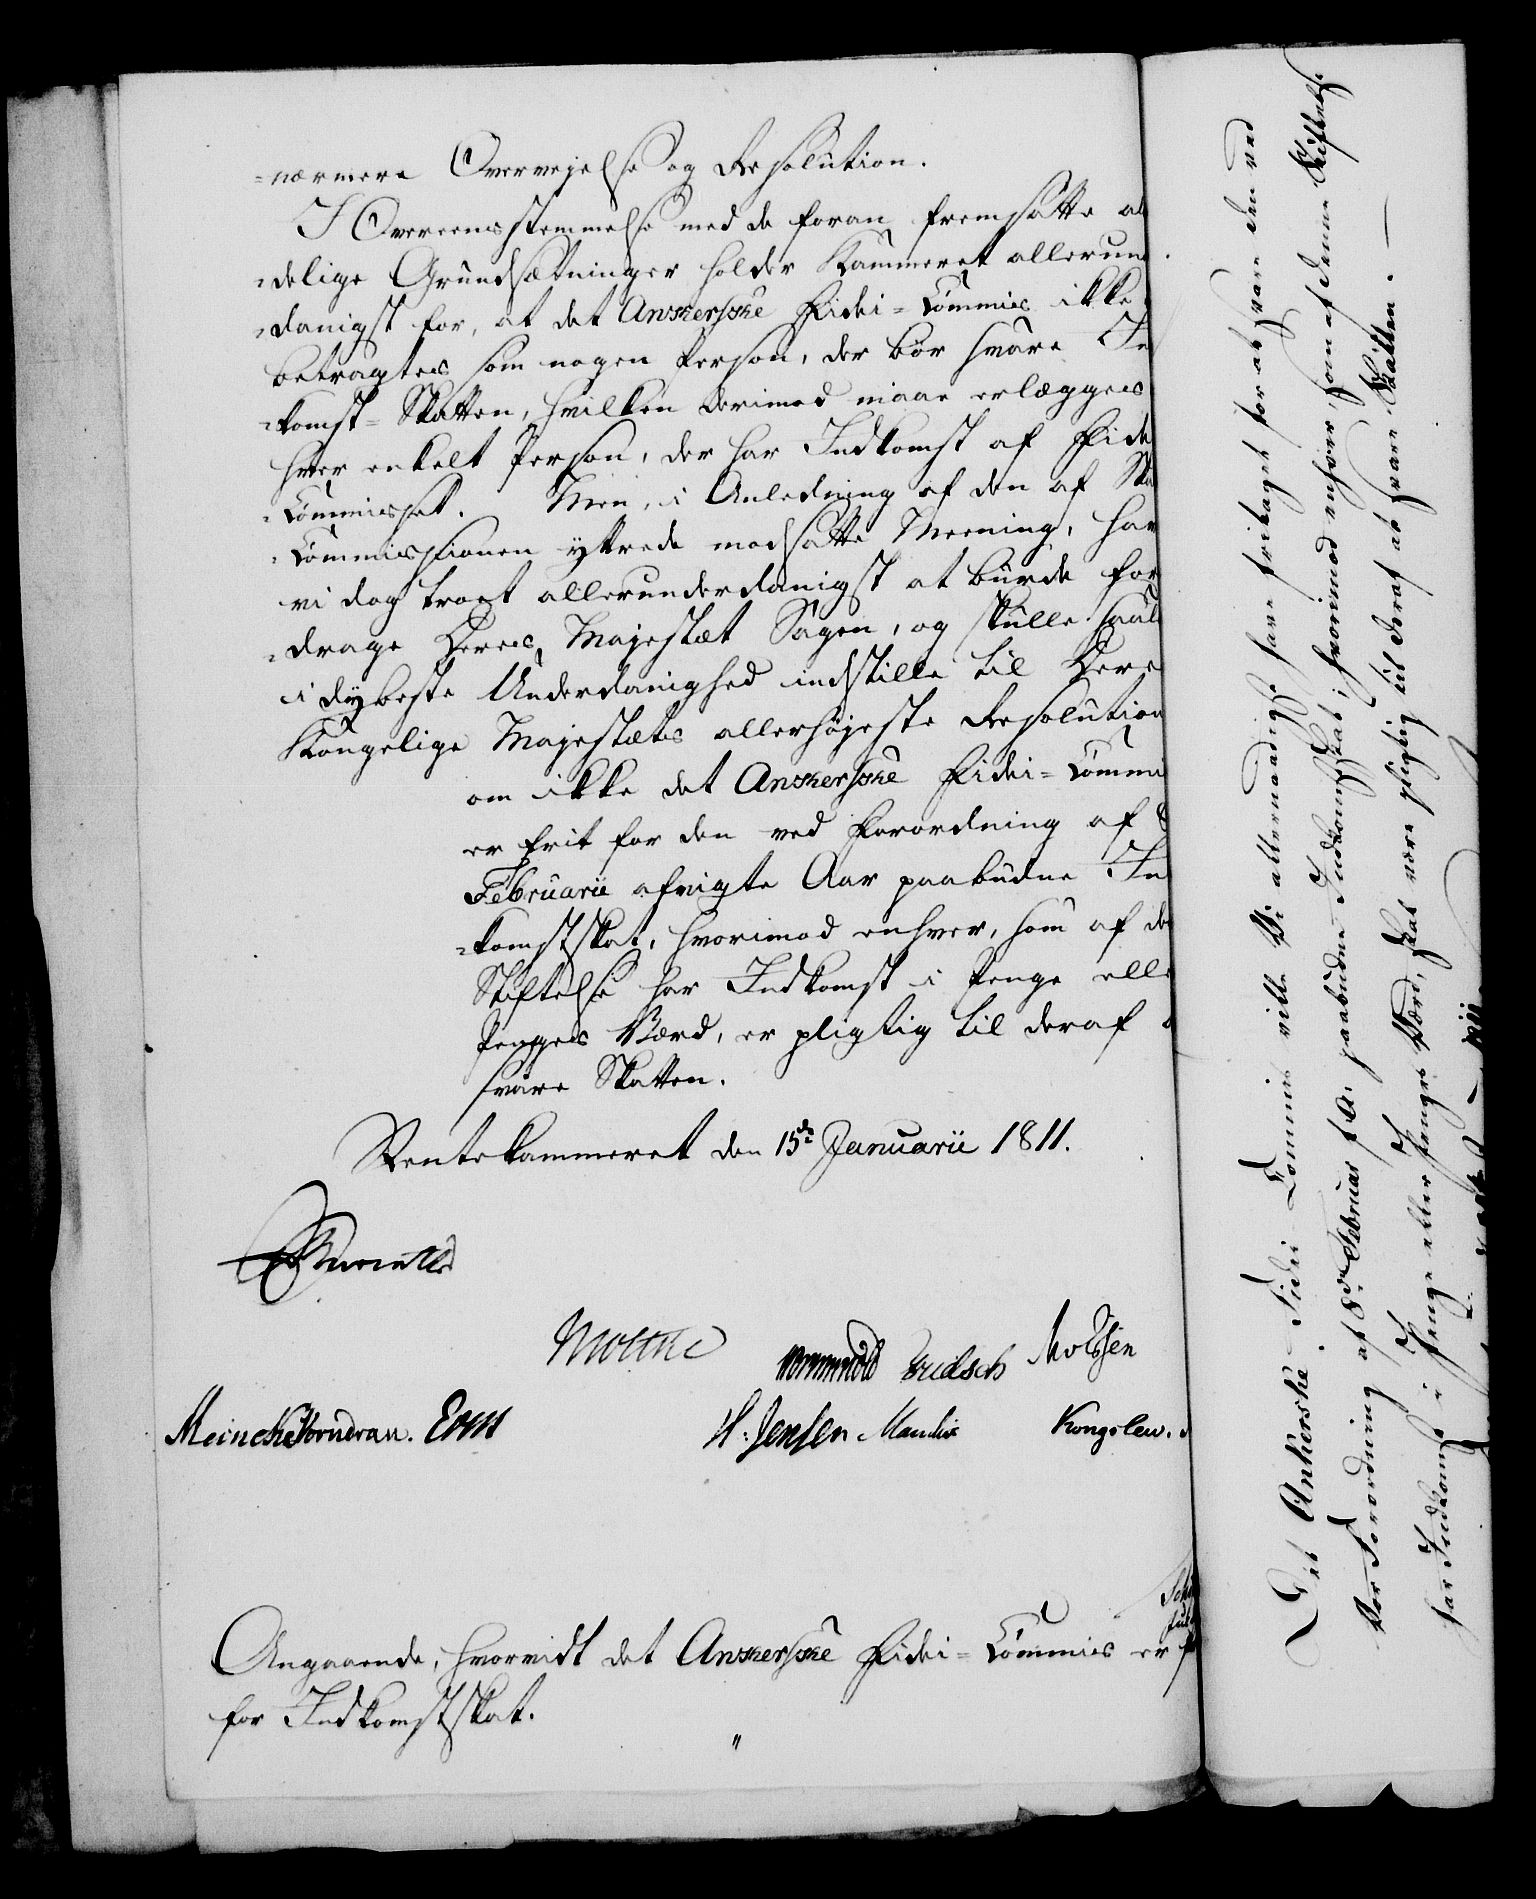 =nærmere Overvejelse og Resolution.
I Overeensstemmelse med de foran fremsatte al
=delige Grundsætninger holder Kammeret allerun
=danigst for, at det Ankerske Fidei=Commis ikke
betragtes som nogen Person, der bør svare In
=komst=Skatten, hvilken derimod maae erlægges
hver enkelt Person, der har Indkomst af Fide
=Commisset. Men, i Anledning af den af Ska
=Commissionen yttrede modsatte Meening, har
vi dog troet allerunderdanigst at burde for
=drage Deres Majestæt Sagen, og skulle saal
i dybeste Underdanighed indstille til Dere
Kongelige Majestæts allerhøjeste Resolution
om ikke det Ankerske Fidei=Commi
er frit for den ved Forordning af 8
Februarii afvigte Aar paabudne In
=komstskat, hvorimod enhver, som af de
Stiftelse har Indkomst i Penge elle
Penges Værd, er pligtig til deraf a
svare Skatten.
Rentekammeret den 15de Januarii 1811.
Moltke
Wormskiold Fridsch Moldsen
Meincke Vorndran. Erm
H: Jensen Manthe Kongslew.
Angaaende, hvorvidt det Ankerske Fidei=Commis er f
for Indkomstskat.
"
Det Ankerske Fidei Commis ville Vi allernaadigst have fritaget for at svare den ved
Vor Forordning af 8de Februar f. A. paabudne Indkomstskat; hvorimod enhver, som af denne Stiftelse
har Indkomst i Penge eller Penges Værd, skal være pligtig til deraf at svare Skatten. —